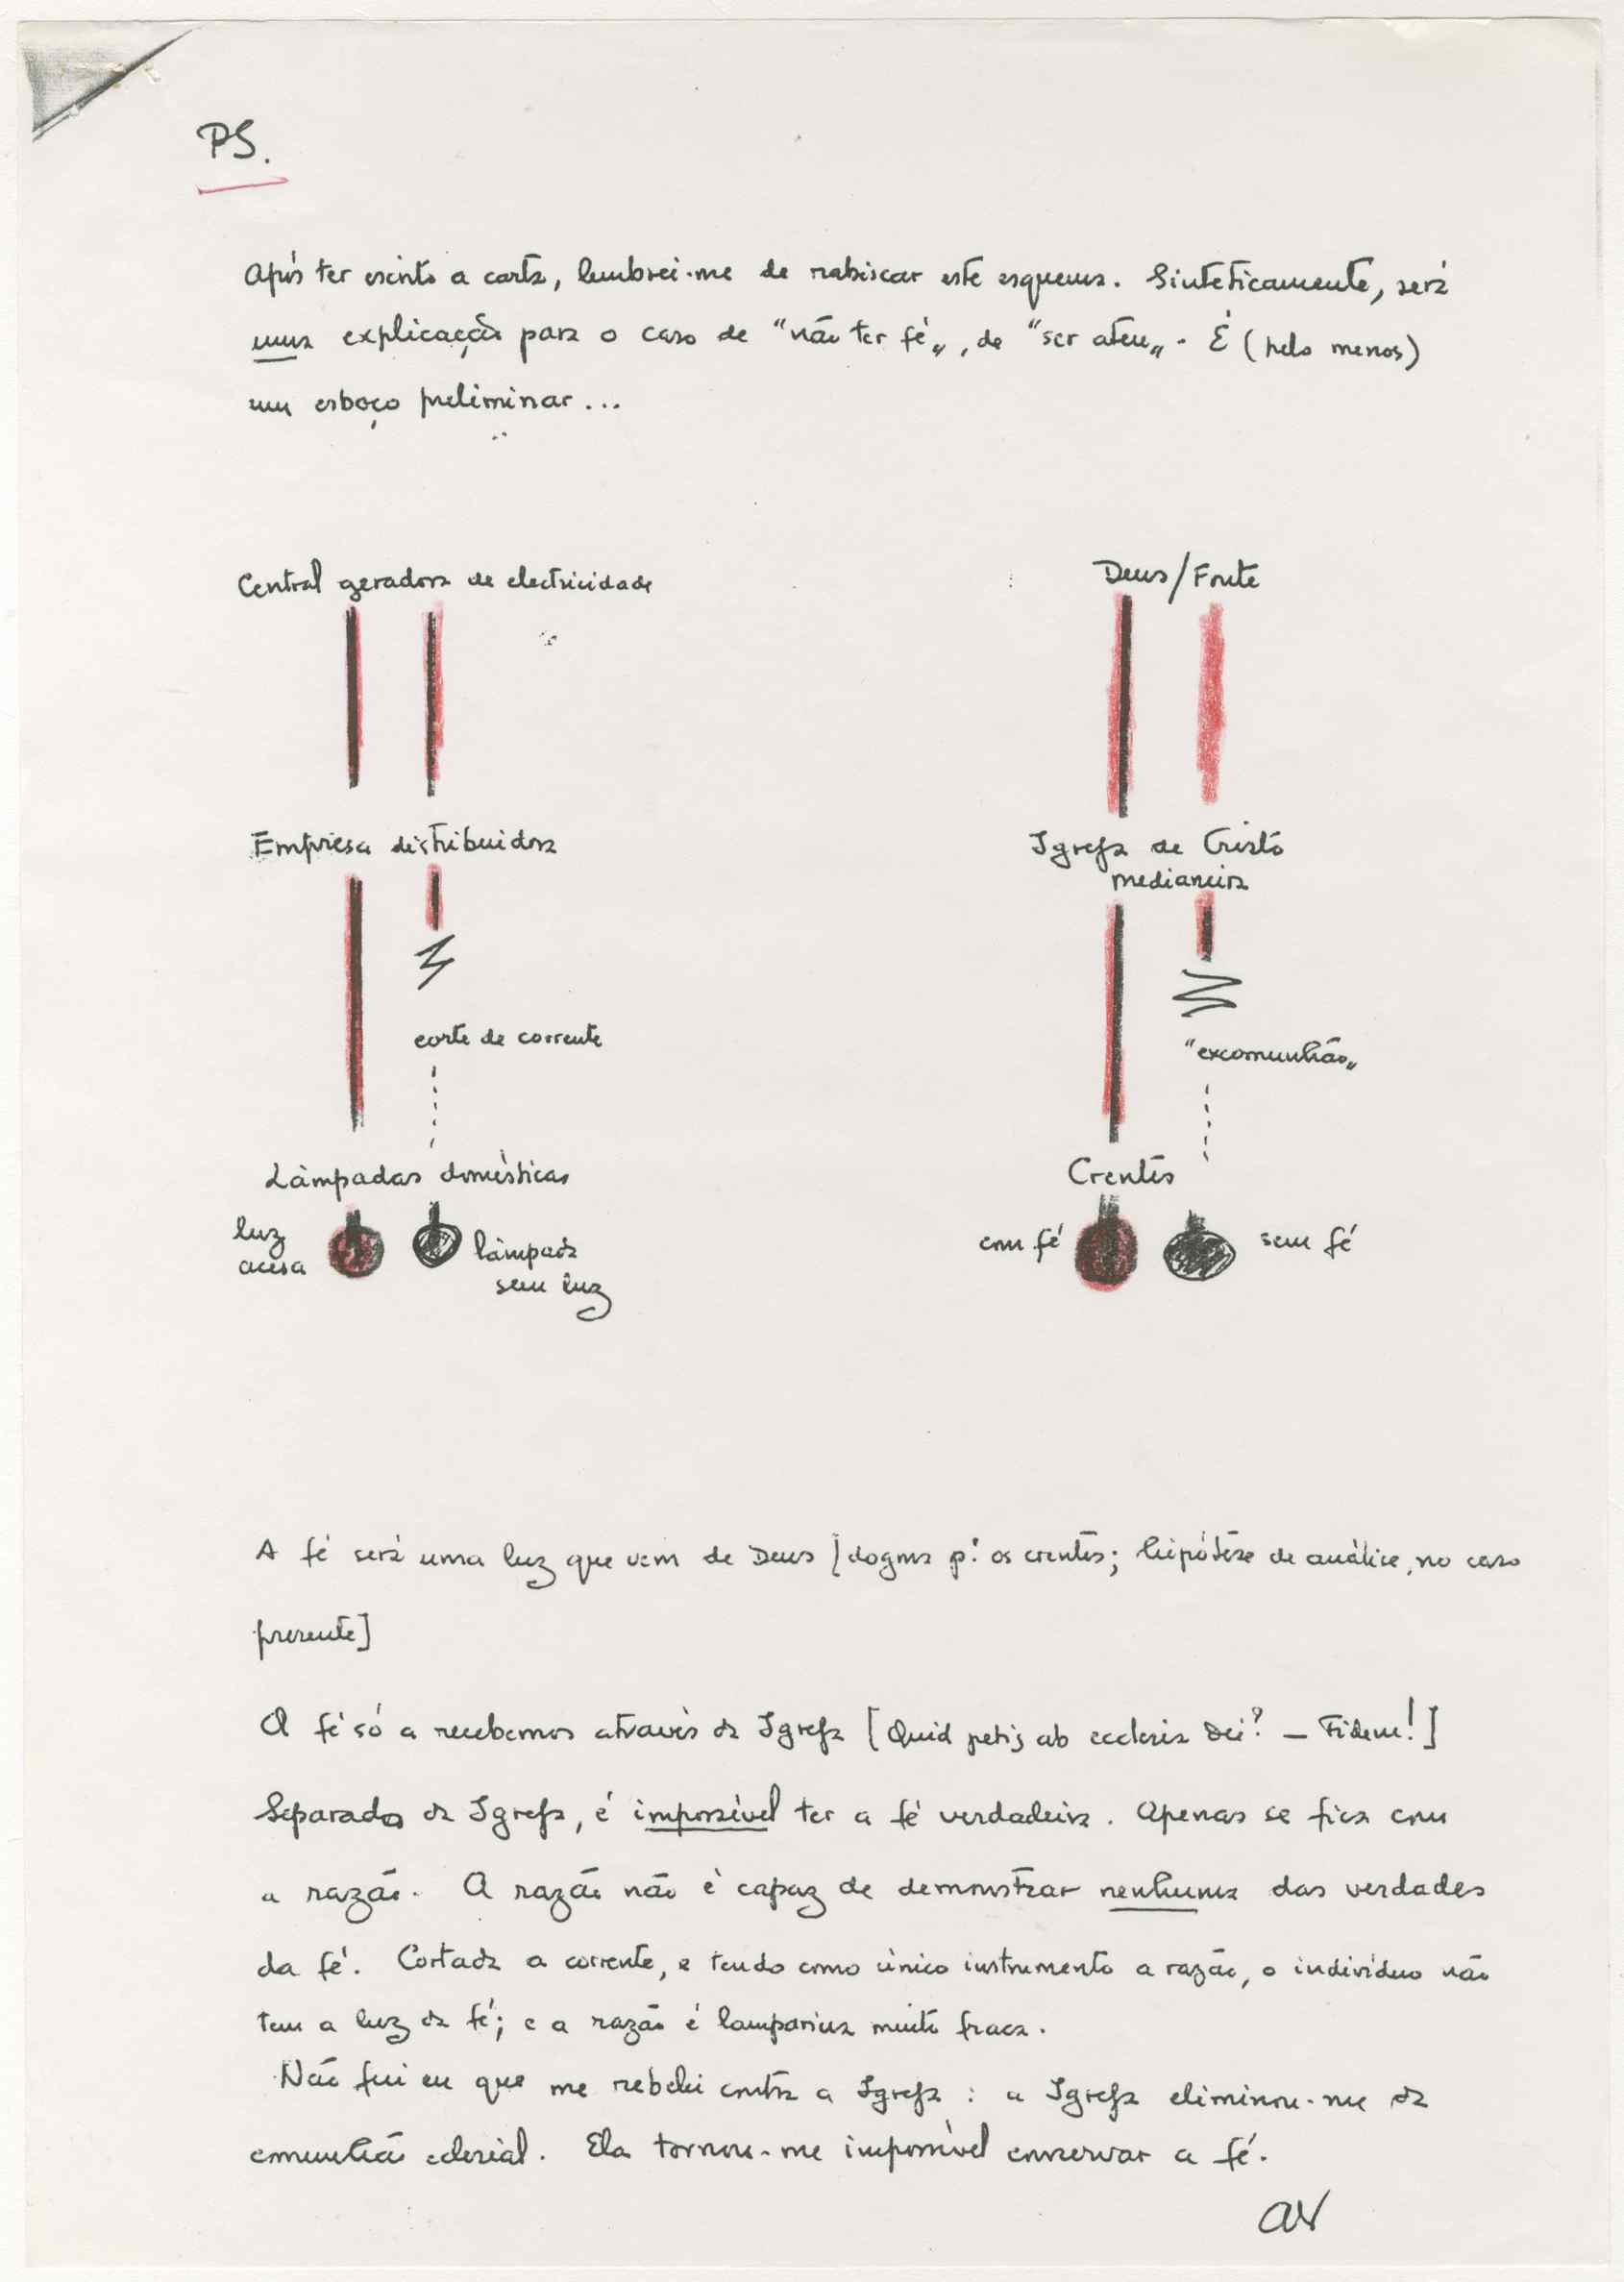 PS.
Após ter escrito a carta, lembrei-me de rabiscar este esquema. Sinteticamente, será
uma explicação para o caso de "não ter fé„, de "ser ateu„. É (pelo menos)
um esboço preliminar...
Central geradora de electricidade
Empresa distribuidora
corte de corrente
Lâmpadas domésticas
luz
acesa
lâmpada
sem luz
Deus/Fonte
Igreja de Cristo
medianeira
"excomunhão„
Crentes
com fé
sem fé
A fé será uma luz que vem de Deus [dogma p.ª os crentes; hipótese de análise, no caso
presente]
A fé só a recebemos através da Igreja [Quid petis ab ecclesia Dei? – Fidem!]
Separados da Igreja, é impossível ter a fé verdadeira. Apenas se fica com
a razão. A razão não é capaz de demonstrar nenhuma das verdades
da fé. Cortada a corrente, e tendo como único instrumento a razão, o indivíduo não
tem a luz da fé; e a razão é lamparina muito fraca.
Não fui eu que me rebelei contra a Igreja : a Igreja eliminou-me da
comunhão eclesial. Ela tornou-me impossível conservar a fé.
AV